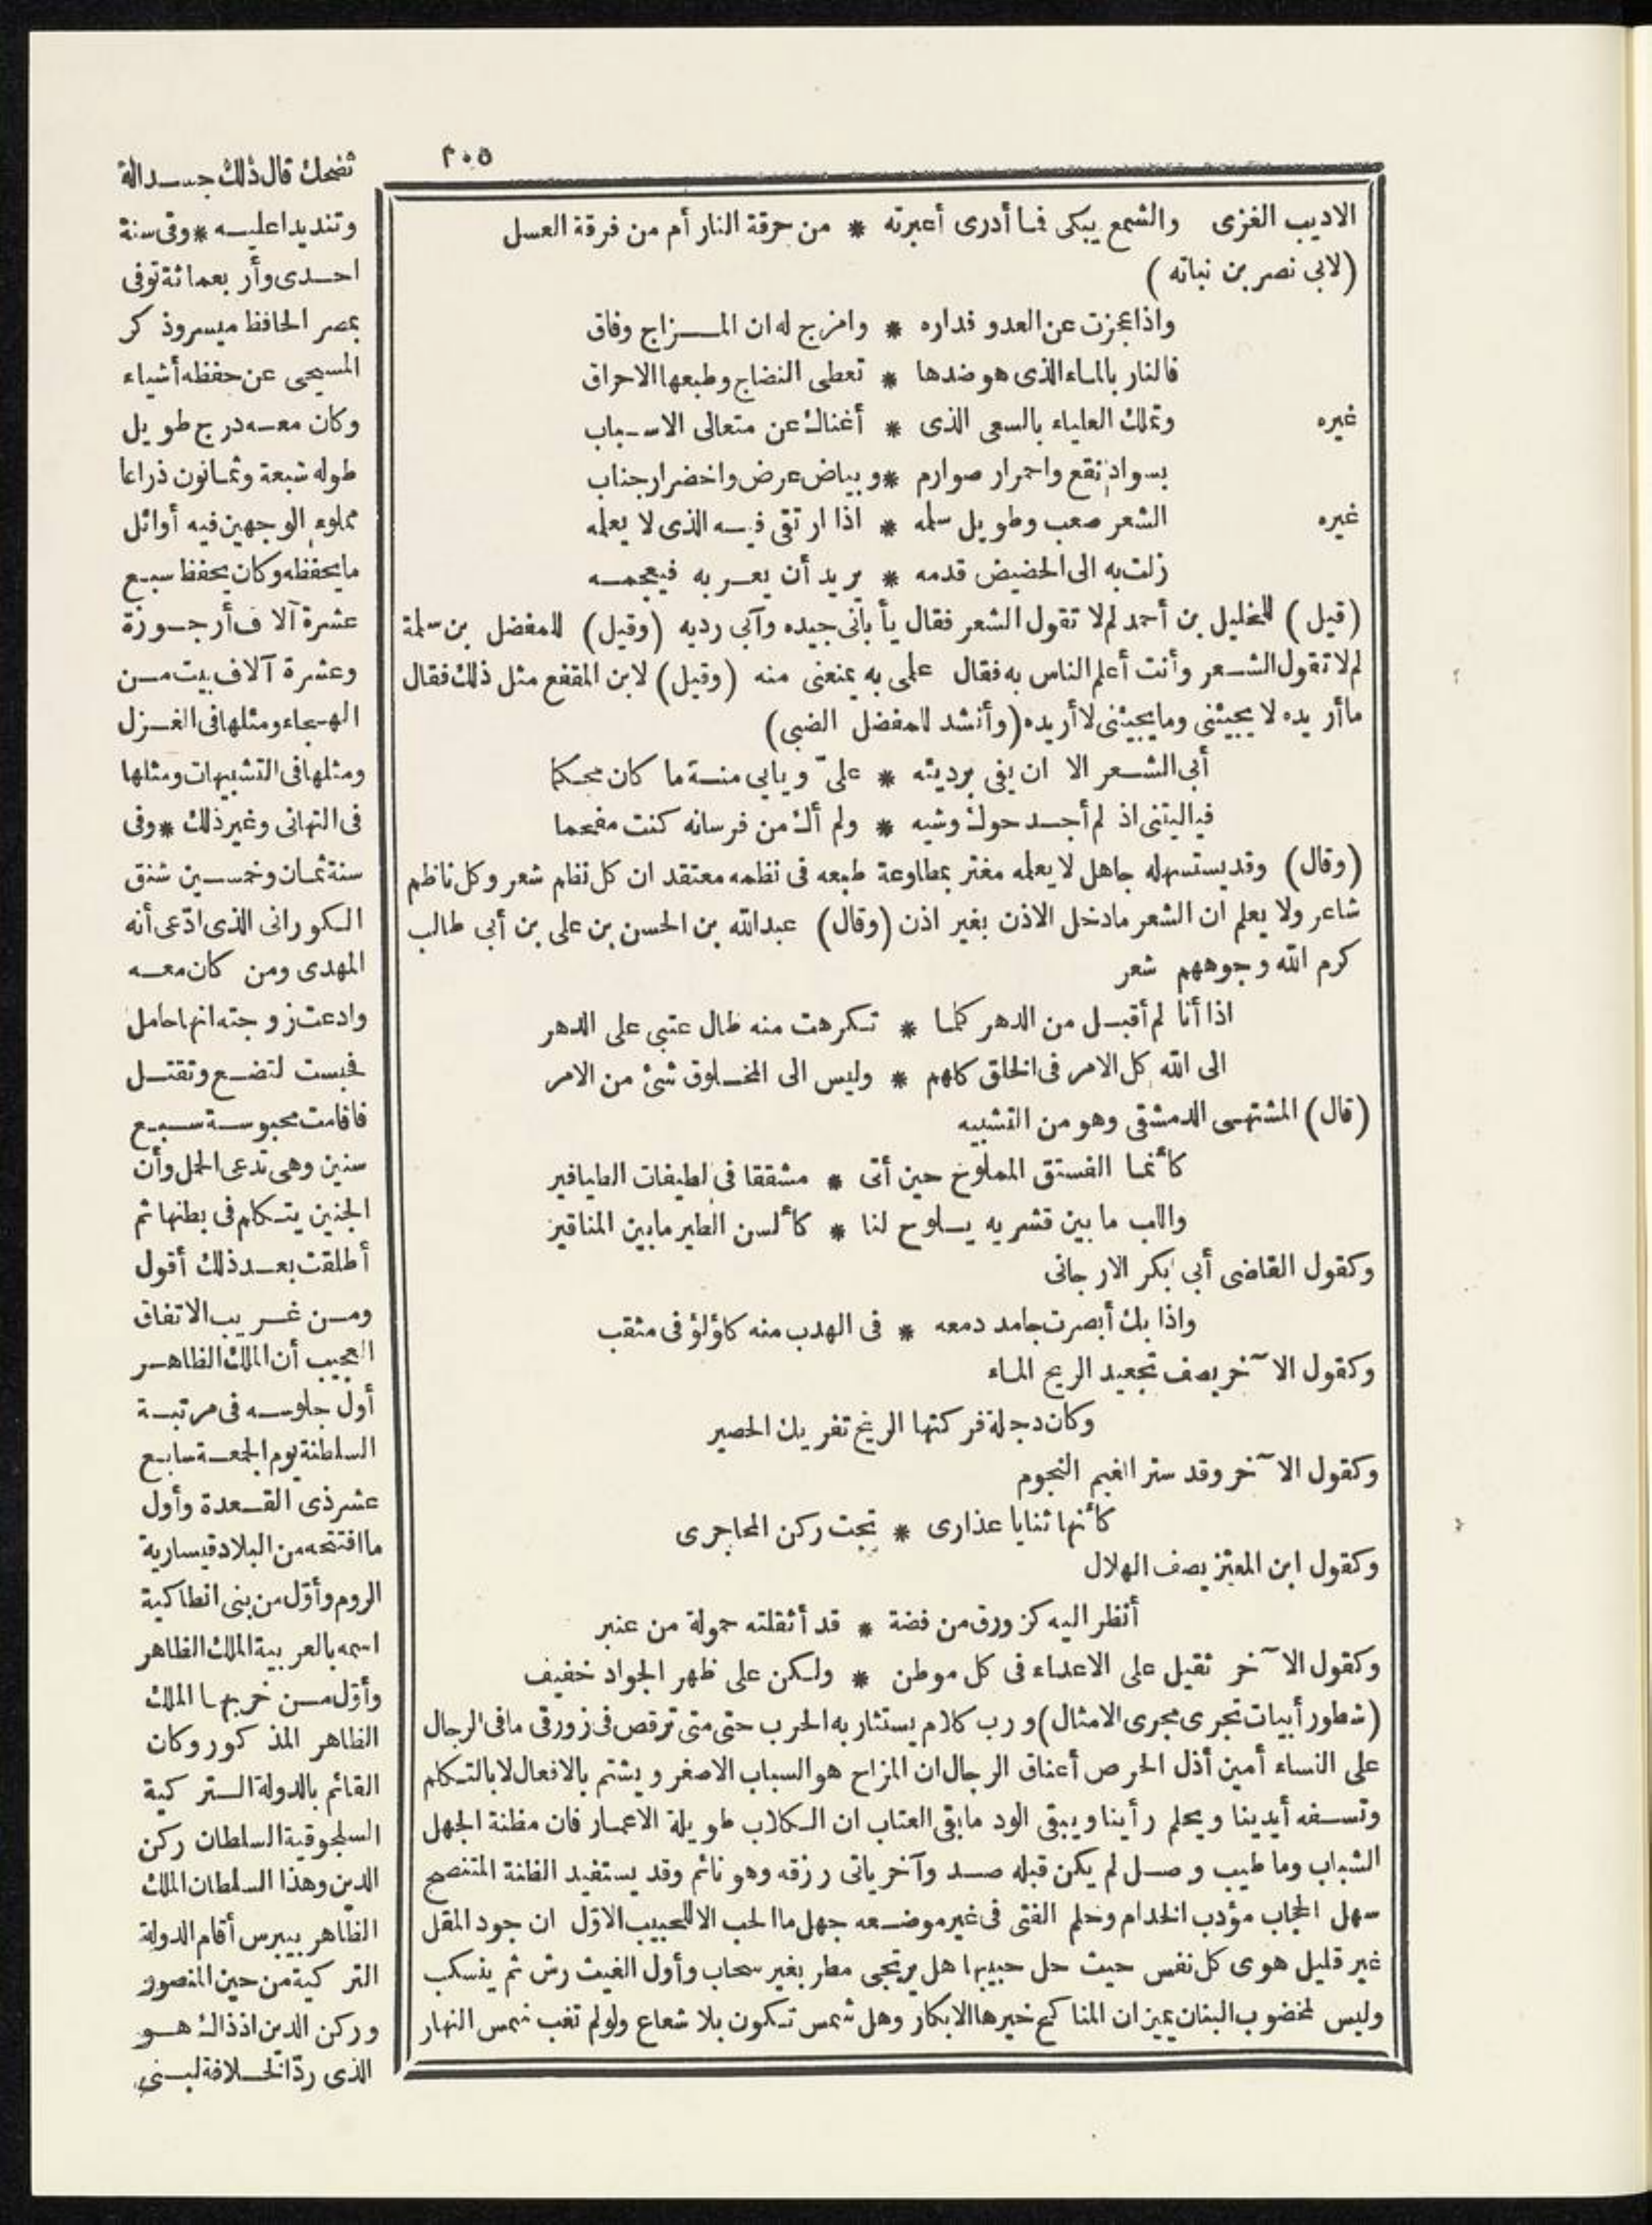 ٢٠٥
الاديب الغزى والشمع يبكى فما أدرى أعبرته * من حرقة النار أم من فرقة العسل
(لابى نصر بن نباته)
واذا عجزت عن العدو فداره * وامزج له ان المزاج وفاق
فالنار بالماء الذى هو ضدها * تعطى النضاج وطبعها الاحراق
غيره وتملك العلياء بالسعى الذى * أغناك عن متعالى الاسباب
بسواد نقع واحمرار صوارم * وبياض عرض واخضرار جناب
غيره الشعر صعب وطويل سلمه * اذا ارتقى فيه الذى لا يعلمه
زلت به الى الحضيض قدمه * يريد أن يعربه فيعجمه
(قيل) للخليل بن أحمد لم لا تقول الشعر فقال يأبانى جيده وآبى رديه (وقيل) للمفضل بن سلمة
لم لا تقول الشعر وأنت أعلم الناس به فقال علمى به يمنعنى منه (وقيل) لابن المقفع مثل ذلك فقال
ما أريده لا يجيئنى وما يجيئنى لا أريده (وأنشد للمفضل الضبى)
أبى الشعر الا ان يفى برديئه * علىّ ويابى منه ما كان محكما
فياليتنى اذ لم أجد حوك وشيه * ولم أك من فرسانه كنت مفحما
(وقال) وقد يستسهله جاهل لا يعلمه مغتر بمطاوعة طبعه فى نظمه معتقد ان كل نظام شعر وكل ناظم
شاعر ولا يعلم ان الشعر مادخل الاذن بغير اذن (وقال) عبدالله بن الحسن بن على بن أبى طالب
كرم الله وجوههم شعر
اذا أنا لم أقبل من الدهر كلما * تكرهت منه طال عتبى على الدهر
الى الله كل الامر فى الخلق كلهم * وليس الى المخلوق شئ من الامر
(قال) المشتهى الدمشقى وهو من التشبيه
كأنما الفستق المملوح حين أتى * مشققا فى لطيفات الطيافير
واللب ما بين قشريه يلوح لنا * كألسن الطير مابين المناقير
وكقول القاضى أبى بكر الارجانى
واذا بك أبصرت جامد دمعه * فى الهدب منه كلؤلؤ فى مثقب
وكقول الآخر يصف تجعيد الريح الماء
وكان دجلة فركتها الريح تفريك الحصير
وكقول الآخر وقد ستر الغيم النجوم
كأنها ثنايا عذارى * تحت ركن المحاجرى
وكقول ابن المعتز يصف الهلال
أنظر اليه كزورق من فضة * قد أثقلته حمولة من عنبر
وكقول الآخر ثقيل على الاعداء فى كل موطن * ولكن على ظهر الجواد خفيف
(شطور أبيات تجرى مجرى الامثال) ورب كلام يستثار به الحرب حتى متى ترقص فى زورقى مافى الرجال
على النساء أمين أذل الحرص أعناق الرجال ان المزاح هو السباب الاصغر ويشتم بالافعال لا بالتكلم
وتسفه أيدينا ويحلم رأينا ويبقى الود مابقى العتاب ان الكلاب طويلة الاعمار فان مظنة الجهل
الشباب وما طيب وصل لم يكن قبله صد وآخر ياتى رزقه وهو نائم وقد يستفيد الظنة المتنصح
سهل الحجاب مؤدب الخدام وحلم الفتى فى غير موضعه جهل ما الحب الا للحبيب الاوّل ان جود المقل
غير قليل هوى كل نفس حيث حل حبيبها هل يرتجى مطر بغير سحاب وأول الغيث رش ثم ينسكب
وليس لمخضوب البنان يمين ان المناكح خيرها الابكار وهل شمس تكون بلا شعاع ولو لم تغب شمس النهار
تضحك قال ذلك جسدالة
وتنديدا عليه * وفى سنة
احدى وأربعمائة توفى
بمصر الحافظ ميسر وذكر
المسيحى عن حفظه أشياء
وكان معه درج طويل
طوله سبعة وثمانون ذراعا
مملوء الوجهين فيه أوائل
مايحفظه وكان يحفظ سبع
عشرة آلاف أرجوزة
وعشرة آلاف بيت من
الهجاء ومثلها فى الغزل
ومثلها فى التشبيهات ومثلها
فى التهانى وغير ذلك * وفى
سنة ثمان وخمسين شنق
الكورانى الذى ادّعى أنه
المهدى ومن كان معه
وادعت زوجته انها حامل
فحبست لتضع وتقتل
فاقامت محبوسة سبع
سنين وهى تدعى الحمل وأن
الجنين يتكلم فى بطنها ثم
أطلقت بعد ذلك أقول
ومن غريب الاتفاق
العجيب أن الملك الظاهر
أول جلوسه فى مرتبة
السلطنة يوم الجمعة سابع
عشر ذى القعدة وأول
ما افتتحه من البلاد قيسارية
الروم وأوّل من بنى انطاكية
اسمه بالعربية الملك الظاهر
وأوّل من خربها الملك
الظاهر المذكور وكان
القائم بالدولة التركية
السلجوقية السلطان ركن
الدين وهذا السلطان الملك
الظاهر بيبرس أقام الدولة
التركية من حين المنصور
وركن الدين اذ ذاك هو
الذى ردّ الخلافة لبنى